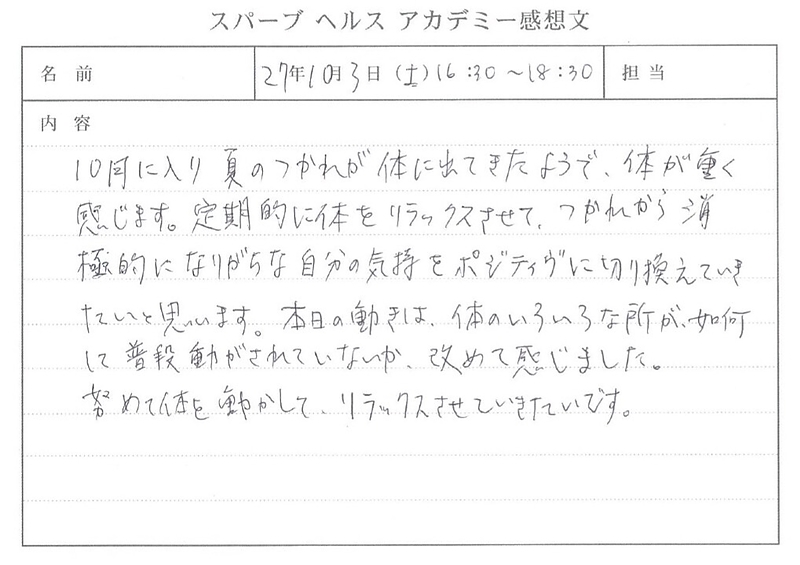 スパーブ ヘルス アカデミー感想文
名 前 27年10月3日（土）16：30～18：30 担 当
内 容
10月に入り夏のつかれが体に出てきたようで、体が重く
感じます。定期的に体をリラックスさせて、つかれから消
極的になりがちな自分の気持をポジティヴに切り換えていき
たいと思います。本日の動きは、体のいろいろな所が、如何
に普段動がされていないか、改めて感じました。
努めて体を動かして、リラックスさせていきたいです。